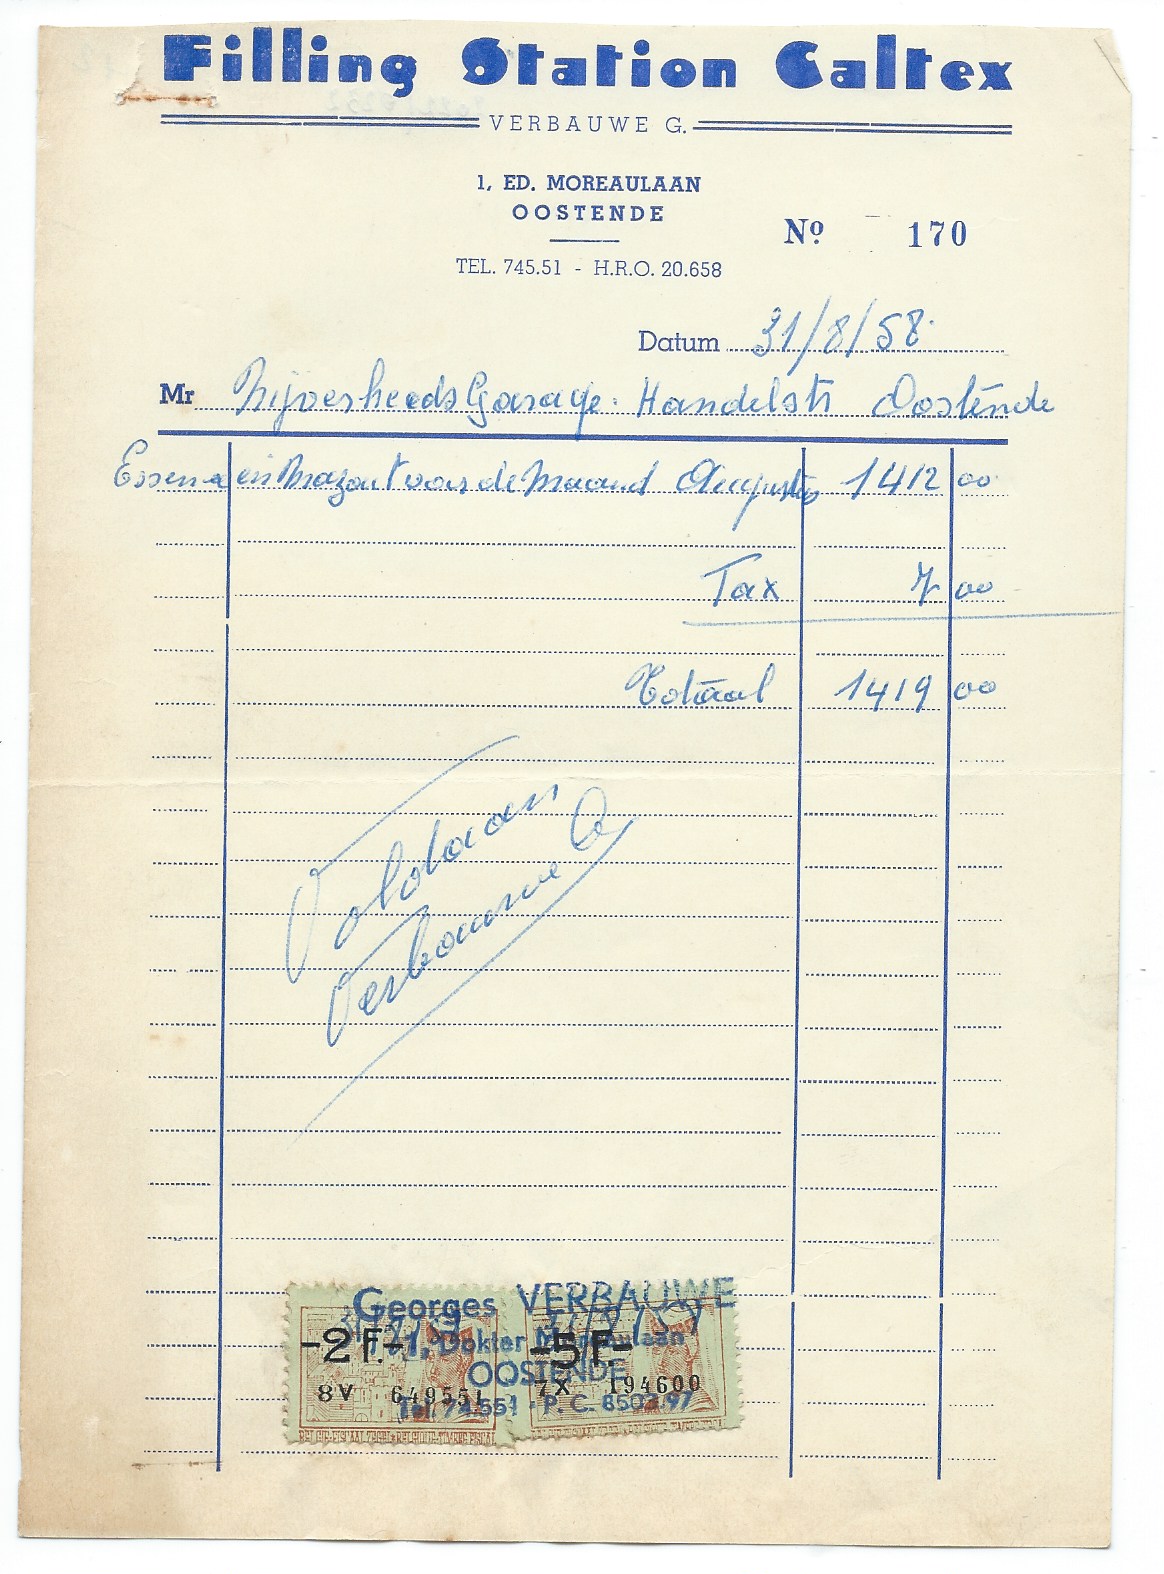 Filling Station Caltex
VERBAUWE G.
1, ED. MOREAULAAN
OOSTENDE
Nº 170
TEL. 745.51 - H.R.O. 20.658
Datum 31/8/58
Mr Nijverheeds Garage. Handelstr Oostende
Essence en Mazout voor de Maand Augustus 1412 00
Tax 7 00
Totaal 1419 00
Voldaan
Verbauwe G
Georges VERBAUWE
1, Dokter Moreaulaan
OOSTENDE
Tel. 74.551 - P. C. 8503.97
-2 F.- -5 F.-
8V 649551 7X 194600
BELGIE-FISCAAL ZEGEL BELGIQUE-TIMBRE FISCAL